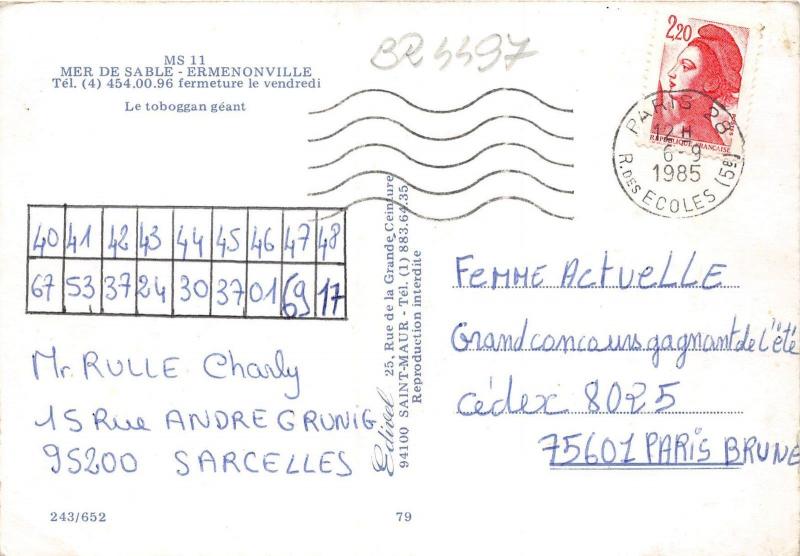 MS 11
MER DE SABLE - ERMENONVILLE
Tél. (4) 454.00.96 fermeture le vendredi
Le toboggan géant
BR4497
2,20
REPUBLIQUE FRANÇAISE
PARIS 28
12H
6-9
1985
R. DES ECOLES (5e)
40 41 42 43 44 45 46 47 48
67 53 37 24 30 37 01 69 17
Mr. RULLE Charly
15 Rue ANDRE GRUNIG
95200 SARCELLES
Edivel
25, Rue de la Grande Ceinture
94100 SAINT-MAUR - Tél. (1) 883.64.35
Reproduction interdite
Femme Actuelle
Grand concours gagnant de l'été
cédex 8025
75601 PARIS BRUNE
243/652
79